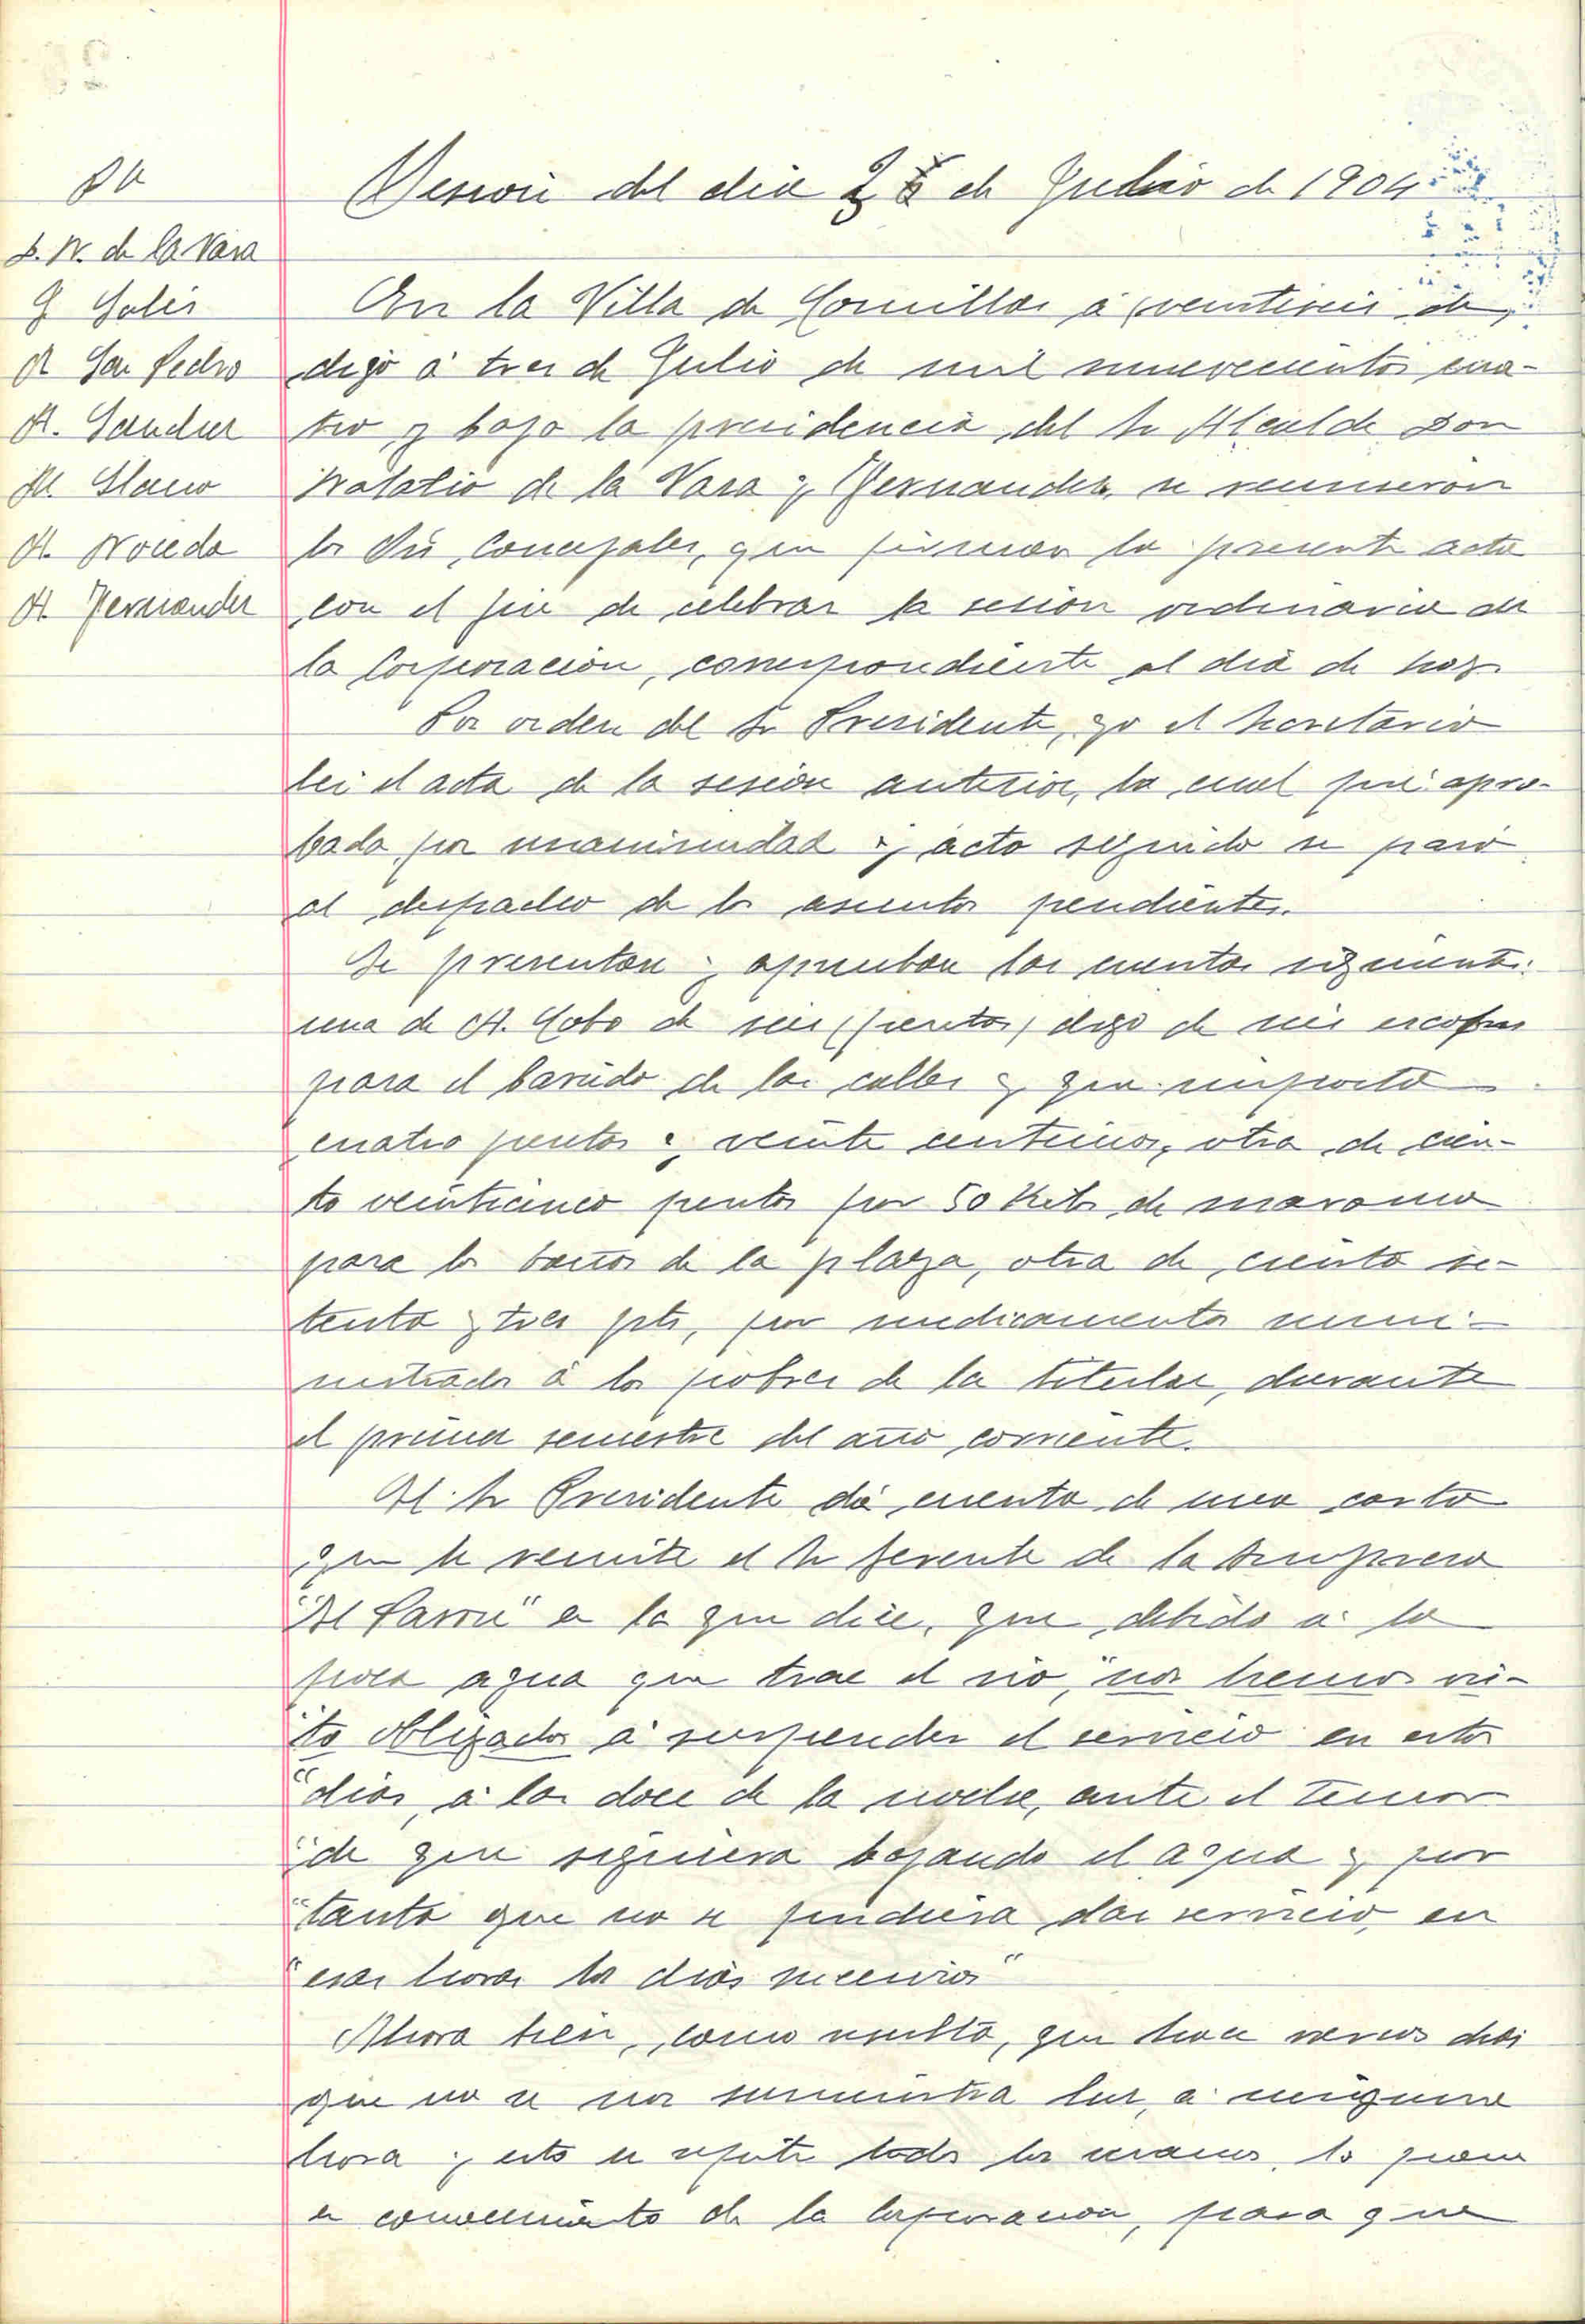 D. N. de la Vara
G. Solis
A. San Pedro
A. Sanchez
M. Llano
A. Noceda
A. Fernandez
Sesion del dia 3 de Julio de 1904
En la Villa de Comillas á (veintiseis de,
digo á tres de Julio de mil novecientos cua-
tro y bajo la presidencia del Sr Alcalde Don
Natalio de la Vara y Fernandez, se reunieron
los Sres Concejales, que firman la presente acta
con el fin de celebrar la sesion ordinaria de
la Corporacion, correspondiente al dia de hoy.
Por orden del Sr Presidente, yo el Secretario
lei el acta de la sesion anterior, la cual fué apro-
bada por unanimidad y acto seguido se pasó
al despacho de los asuntos pendientes.
Se presentan y aprueban las cuentas siguientes:
una de A. Cobo de seis (pesetas) digo de seis escobas
para el barrido de las calles y que importa
cuatro pesetas y veinte centimos, otra de cien-
to veinticinco pesetas por 50 Kilos de maroma
para los baños de la playa, otra de ciento se-
tenta y tres pts, por medicamentos sumi-
nistrados á los pobres de la titular, durante
el primer semestre del año corriente.
El Sr Presidente dá cuenta de una carta
que le remite el Sr Gerente de la Empresa
en la que dice, que debido á la
poca agua que trae el rio, "nos hemos vis-
"to obligados á suspender el servicio en estos
"dias, á las doce de la noche, ante el temor
"de que siguiera bajando el agua y por
"tanto que no se pudiera dar servicio, en
"esas horas los dias sucesivos"
Ahora bien, como resulta, que hace varios dias
que no se nos suministra luz, á ninguna
hora y esto se repite todos los veranos, lo pone
en conocimiento de la Corporacion, para que